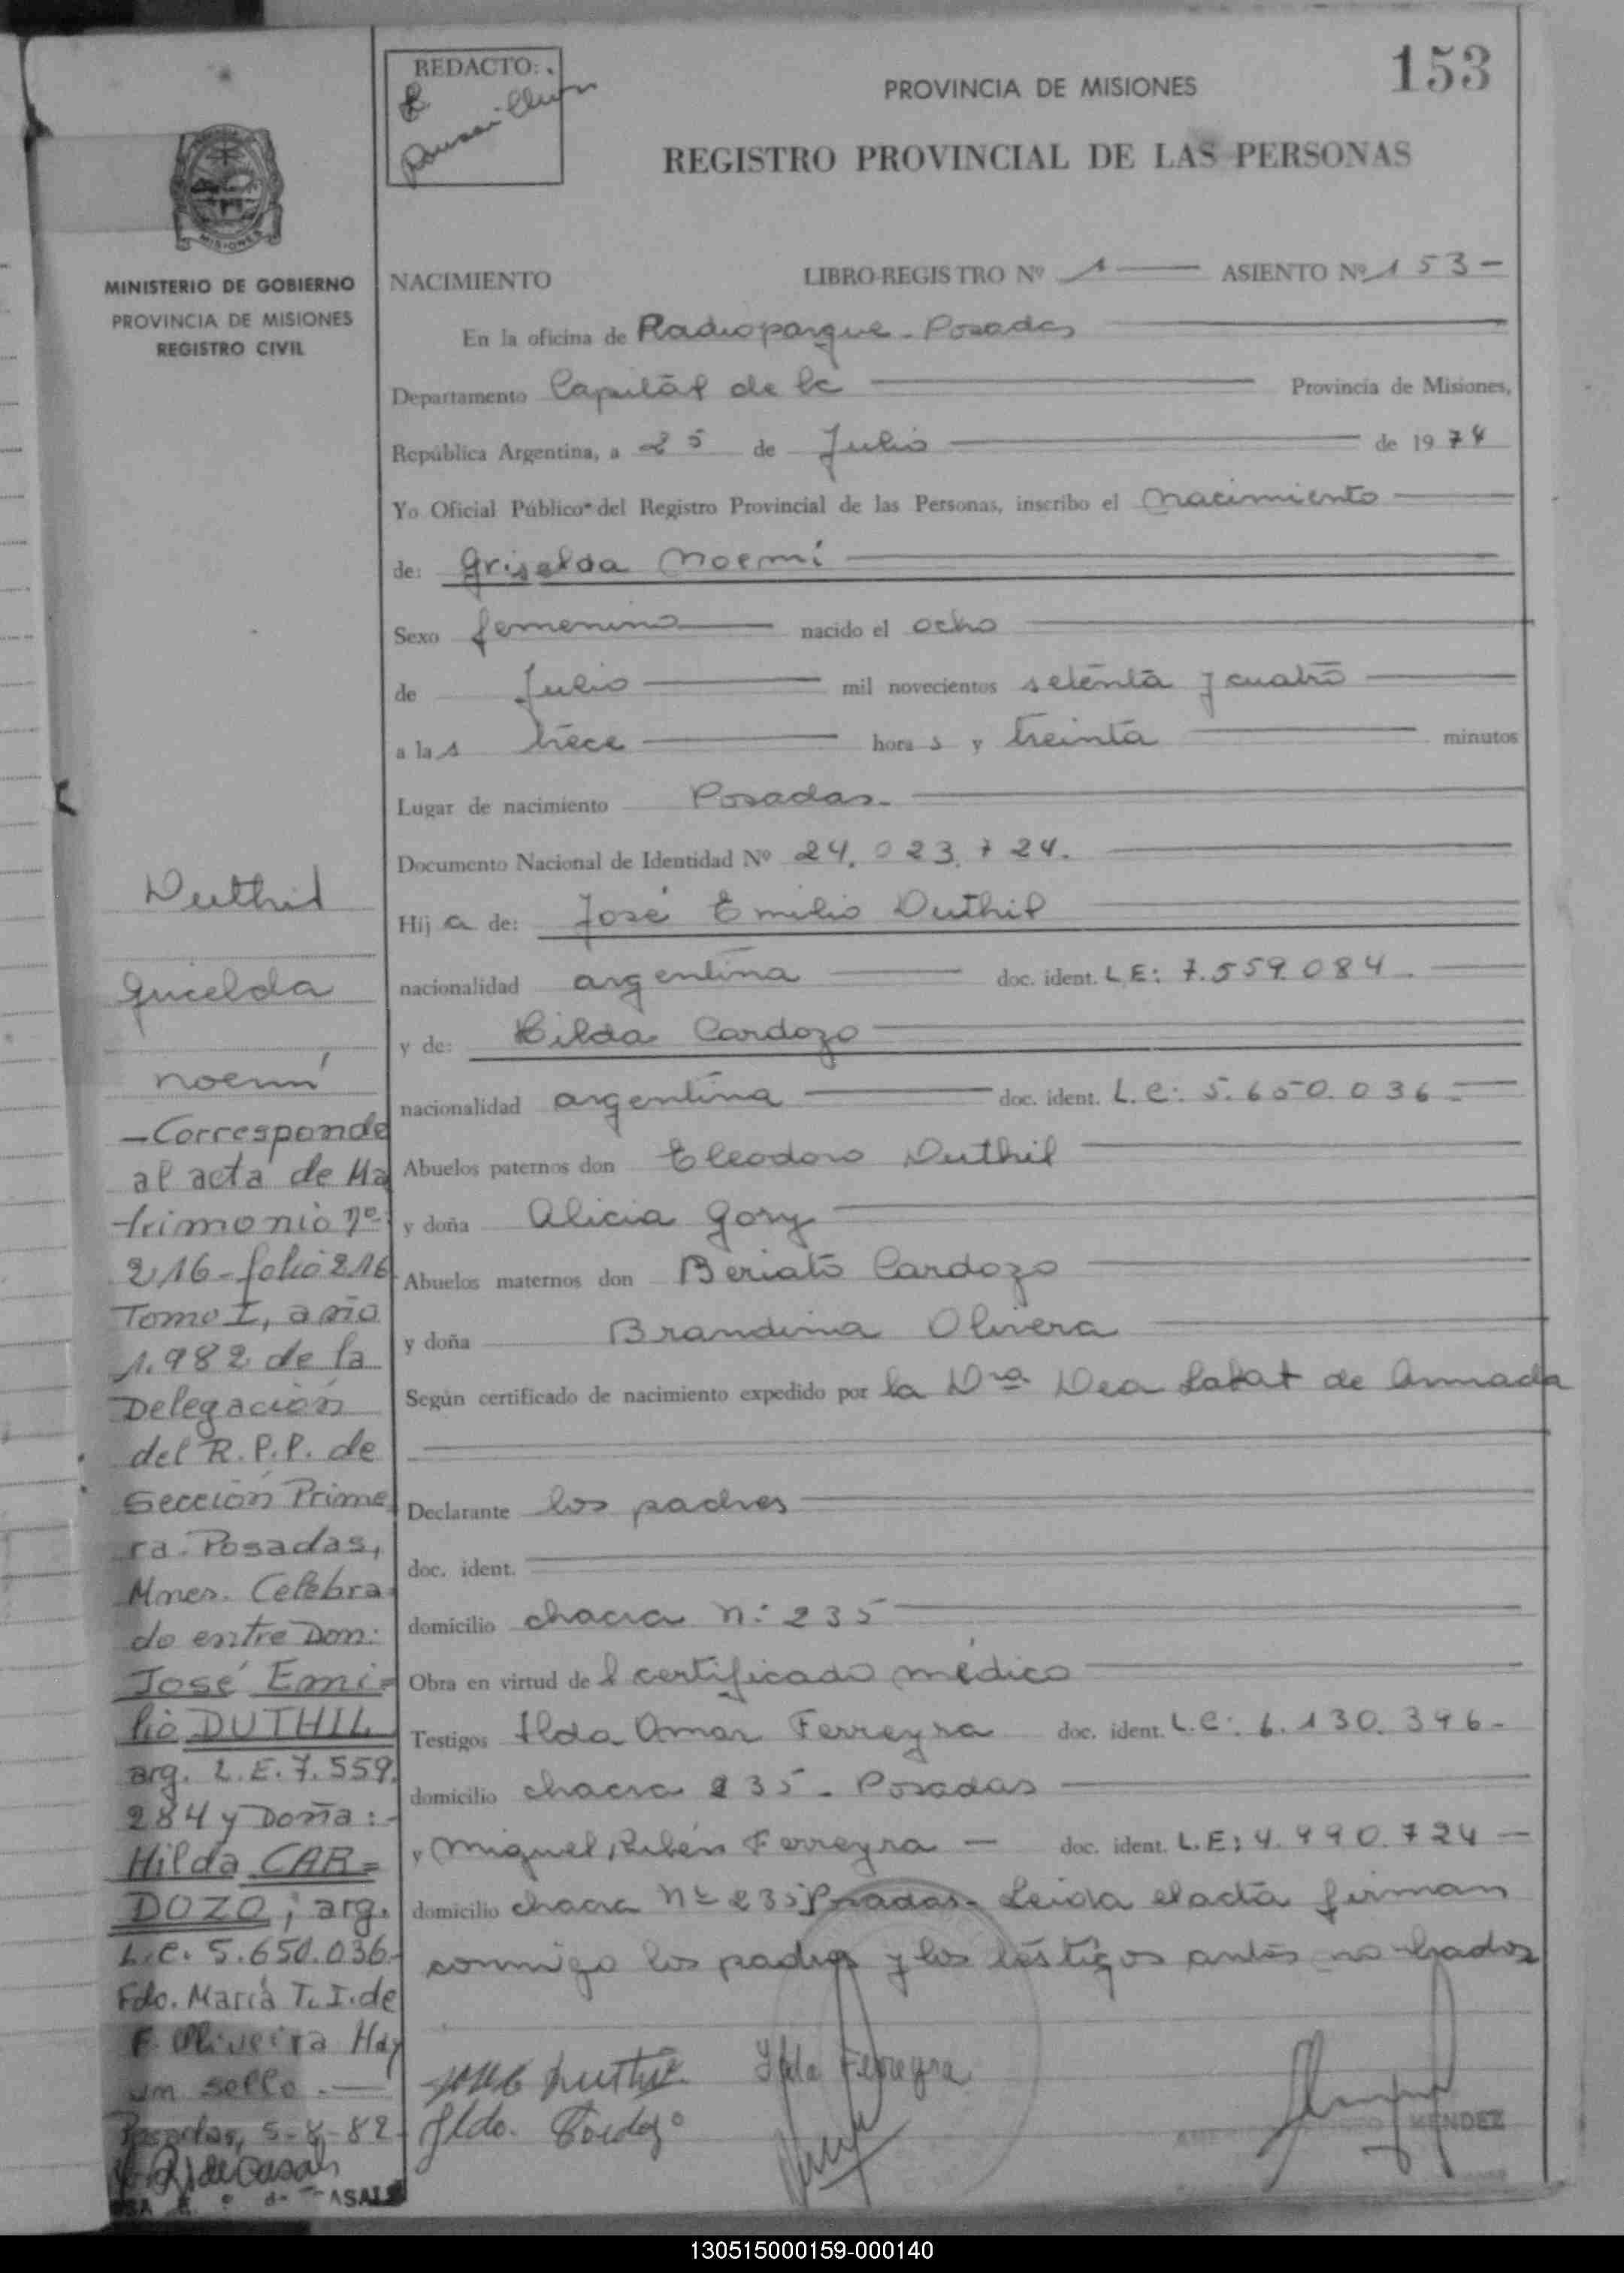 153
REDACTO:
PROVINCIA DE MISIONES
REGISTRO PROVINCIAL DE LAS PERSONAS
MISIONES
MINISTERIO DE GOBIERNO
PROVINCIA DE MISIONES
REGISTRO CIVIL
NACIMIENTO LIBRO-REGISTRO Nº 1 ASIENTO Nº 153-
En la oficina de Radioparque - Posadas
Departamento Capital de la Provincia de Misiones,
República Argentina, a 25 de Julio de 1974
Yo Oficial Público del Registro Provincial de las Personas, inscribo el nacimiento
de: Griselda Noemí
Sexo femenino nacido el ocho
de Julio mil novecientos setenta y cuatro
a la s trece hora s y treinta minutos
Lugar de nacimiento Posadas-
Documento Nacional de Identidad Nº 24.023.724.
Hij a de: José Emilio Duthil
nacionalidad argentina doc. ident. L E: 7.559.084.
y de: Hilda Cardozo
nacionalidad argentina doc. ident. L.C: 5.650.036-
Abuelos paternos don Eleodoro Duthil
y doña Alicia Gory
Abuelos maternos don Beriato Cardozo
y doña Brandina Olivera
Según certificado de nacimiento expedido por la Dra Dea Labat de Armada
Declarante los padres
doc. ident.
domicilio chacra n: 235
Obra en virtud de l certificado médico
Testigos Ilda Omar Ferreyra doc. ident. L.C: 6.130.396-
domicilio chacra 235 - Posadas
y Miguel Rubén Ferreyra - doc. ident. L.E: 4.990.724-
domicilio chacra Nº 235 Posadas- Leida el acta firman
conmigo los padres y los testigos antes no brados
Duthil
Gricelda
Noemí
-Corresponde
al acta de Ma
trimonio nº
216-folio 216
Tomo I, año
1.982 de la
Delegación
del R.P.P. de
Sección Prime
ra-Posadas,
Mnes. Celebra
do entre Don:
José Emi=
lio DUTHIL
arg. L.E.7.559.
284 y Doña:-
Hilda CAR=
DOZO; arg.
L.C. 5.650.036-
Fdo. María T. I. de
F. Oliveira Hay
un sello.-
Posadas, 5-8-82
Jose Duthil Ilda Ferreyra
Ilda.
MENDEZ
130515000159-000140